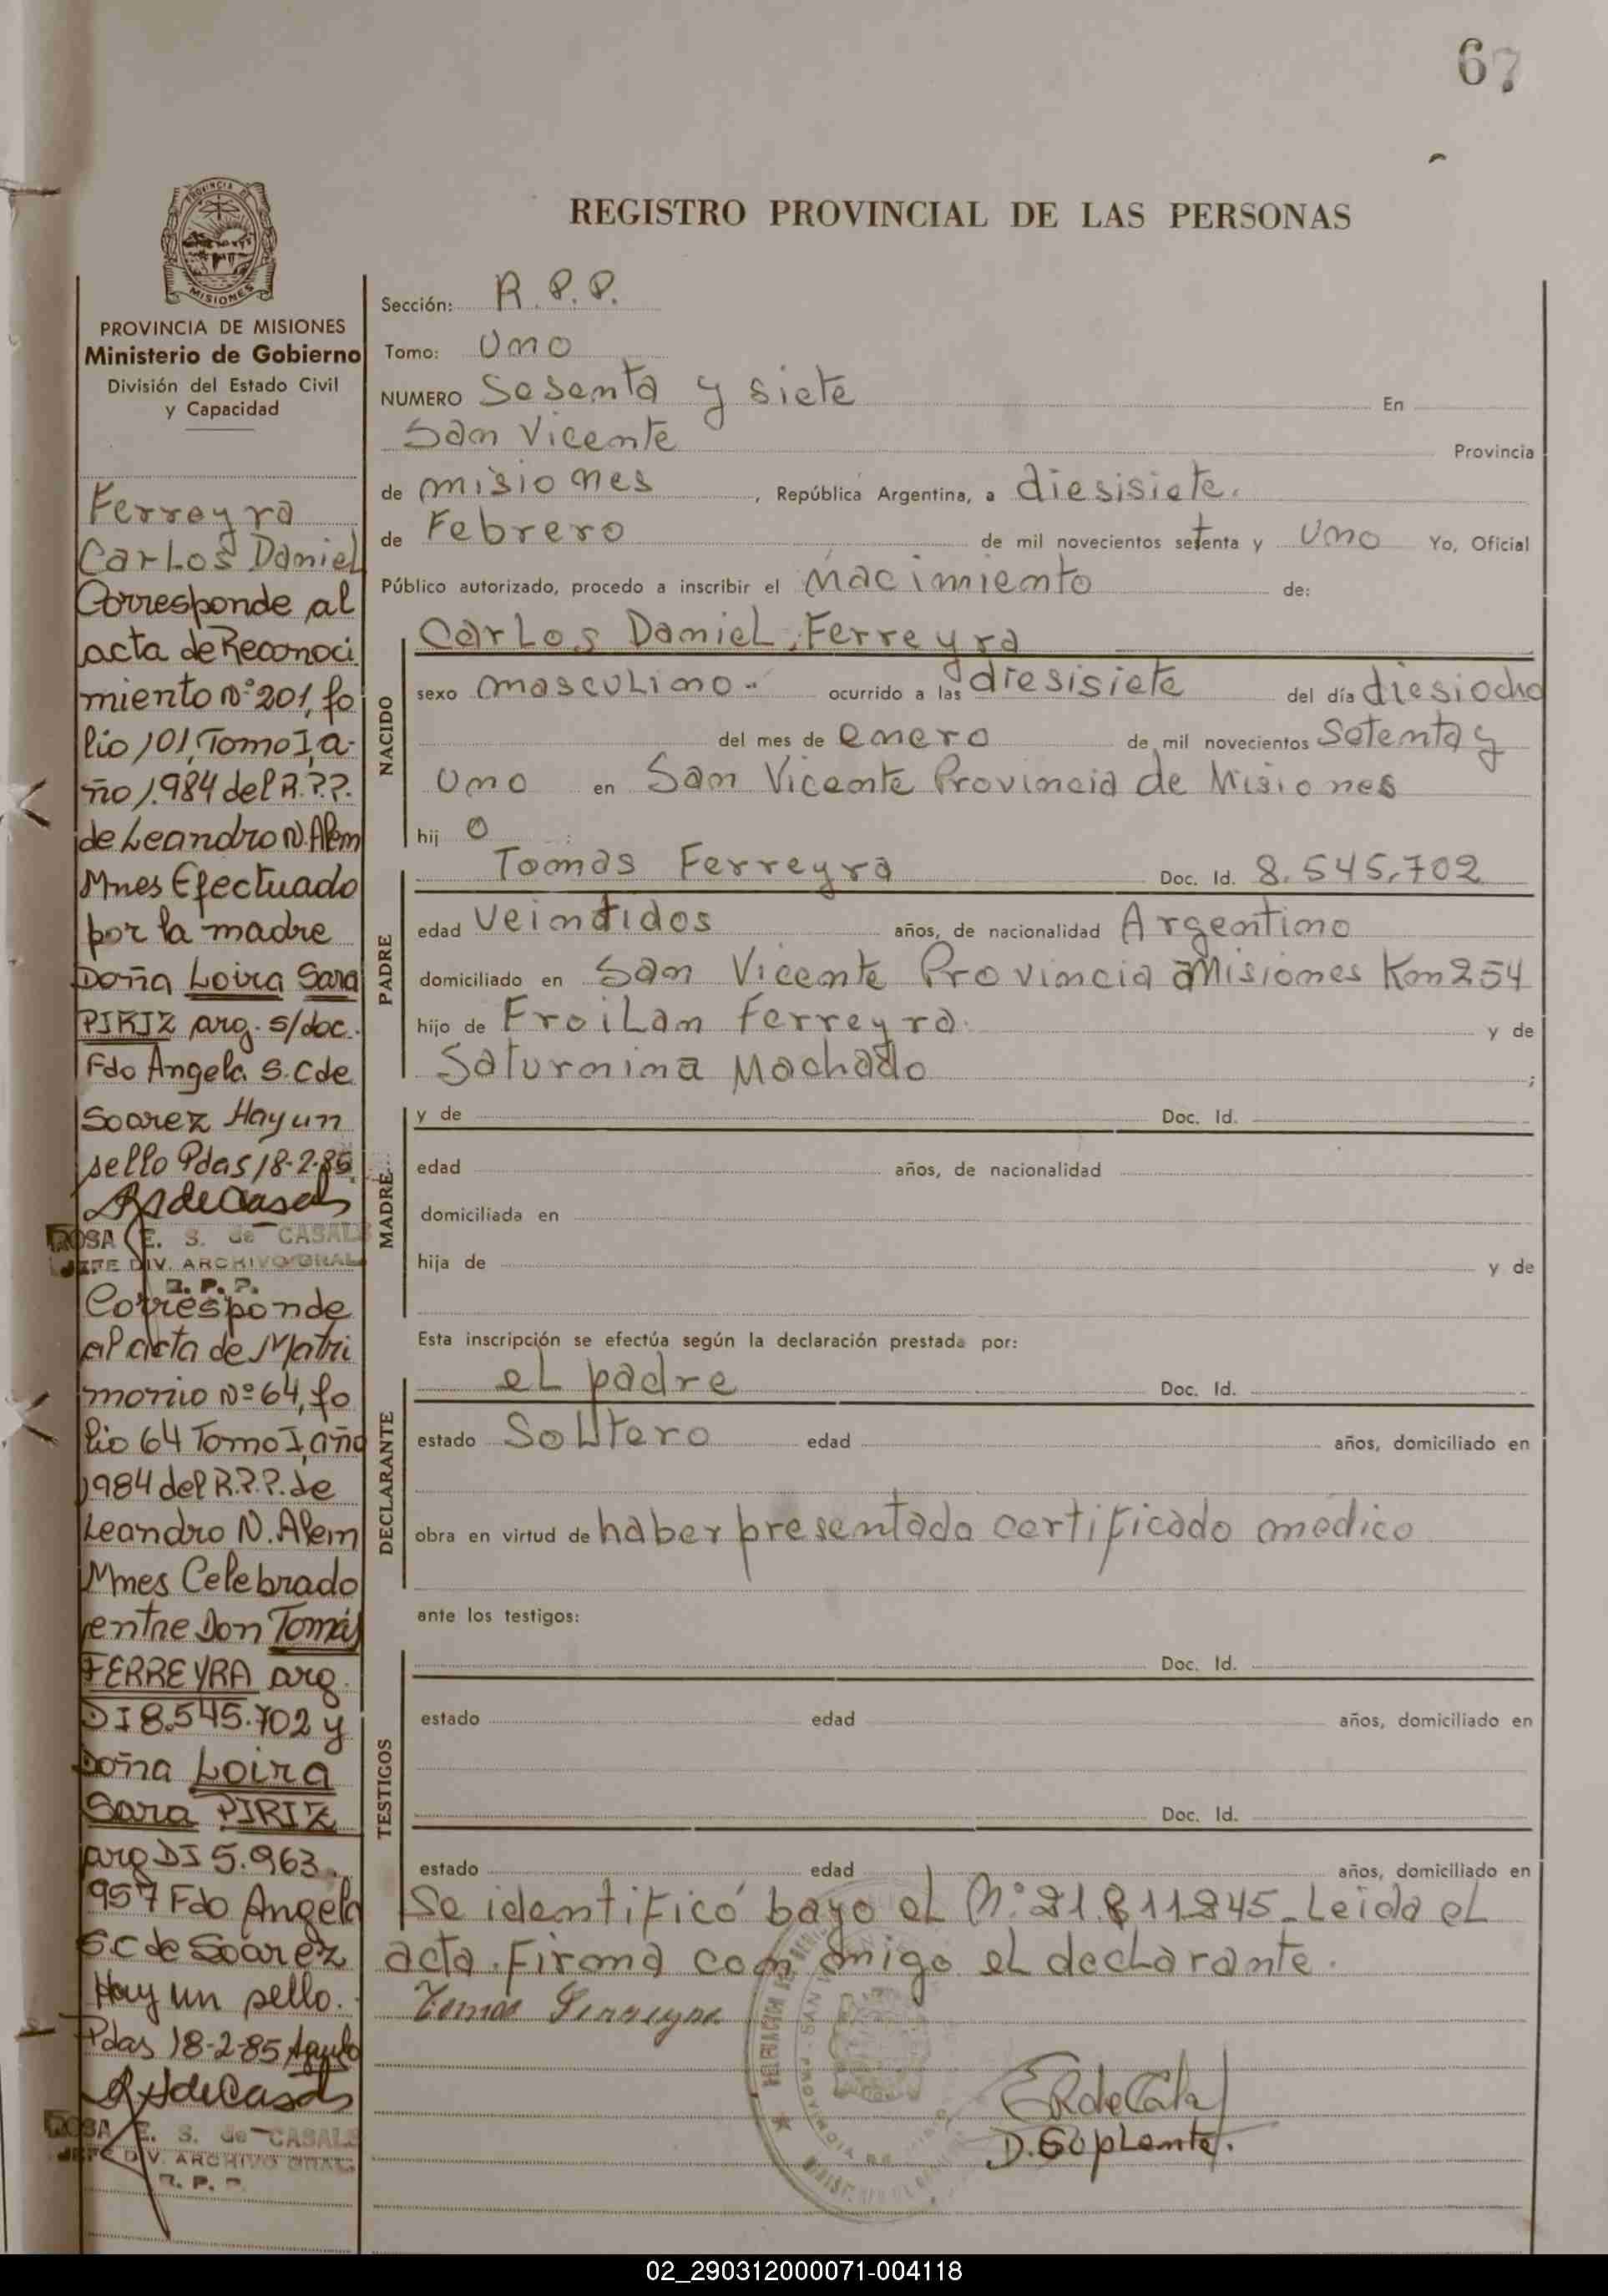 67
PROVINCIA DE
MISIONES
REGISTRO PROVINCIAL DE LAS PERSONAS
PROVINCIA DE MISIONES
Ministerio de Gobierno
División del Estado Civil
y Capacidad
Ferreyra
Carlos Daniel
Corresponde al
acta de Reconoci
miento Nº 201, fo
lio 101, Tomo I, a-
ño 1.984 del R.P.P.
de Leandro N. Alem
Mnes Efectuado
por la madre
Doña Loira Sara
PIRIZ arg. s/doc.
Fdo Angela S. C de
Soarez Hay un
sello Pdas 18-2-85
ROSA E. S. de CASALS
JEFE DIV. ARCHIVO GRAL.
R. P. P.
Corresponde
al acta de Matri
monio Nº 64, fo
lio 64 Tomo I, año
1984 del R.P.P. de
Leandro N. Alem
Mnes Celebrado
entre Don Tomás
FERREYRA arg.
DI 8.545.702 y
Doña Loira
Sara PIRIZ
arg DI 5.963.
957 Fdo Angela
S.C de Soarez
Hay un sello.
Pdas 18-2-85
ROSA E. S. de CASALS
JEFE DIV. ARCHIVO GRAL.
R. P. P.
Sección: R.P.P.
Tomo: Uno
NUMERO Sesenta y siete En
San Vicente Provincia
de misiones, República Argentina, a diesisiete.
de Febrero de mil novecientos setenta y Uno Yo, Oficial
Público autorizado, procedo a inscribir el Nacimiento de:
NACIDO
Carlos Daniel, Ferreyra
sexo masculino.. ocurrido a las diesisiete del día diesiocho
del mes de enero de mil novecientos Setenta y
Uno en San Vicente Provincia de Misiones
hij o
PADRE
Tomas Ferreyra Doc. Id. 8.545.702
edad veintidos años, de nacionalidad Argentino
domiciliado en San Vicente Provincia Misiones Km 254
hijo de Froilan Ferreyra. y de
Saturnina Machado ;
MADRE
y de Doc. Id.
edad años, de nacionalidad
domiciliada en
hija de y de
Esta inscripción se efectúa según la declaración prestada por:
DECLARANTE
el padre Doc. Id.
estado Soltero edad años, domiciliado en
obra en virtud de haber presentado certificado medico
ante los testigos:
TESTIGOS
Doc. Id.
estado edad años, domiciliado en
Doc. Id.
estado edad años, domiciliado en
Se identificó bajo el Nº 21.811.245. Leida el
acta. Firma con migo el declarante.
Tomas Ferreyra
D. Suplente.
02_290312000071-004118